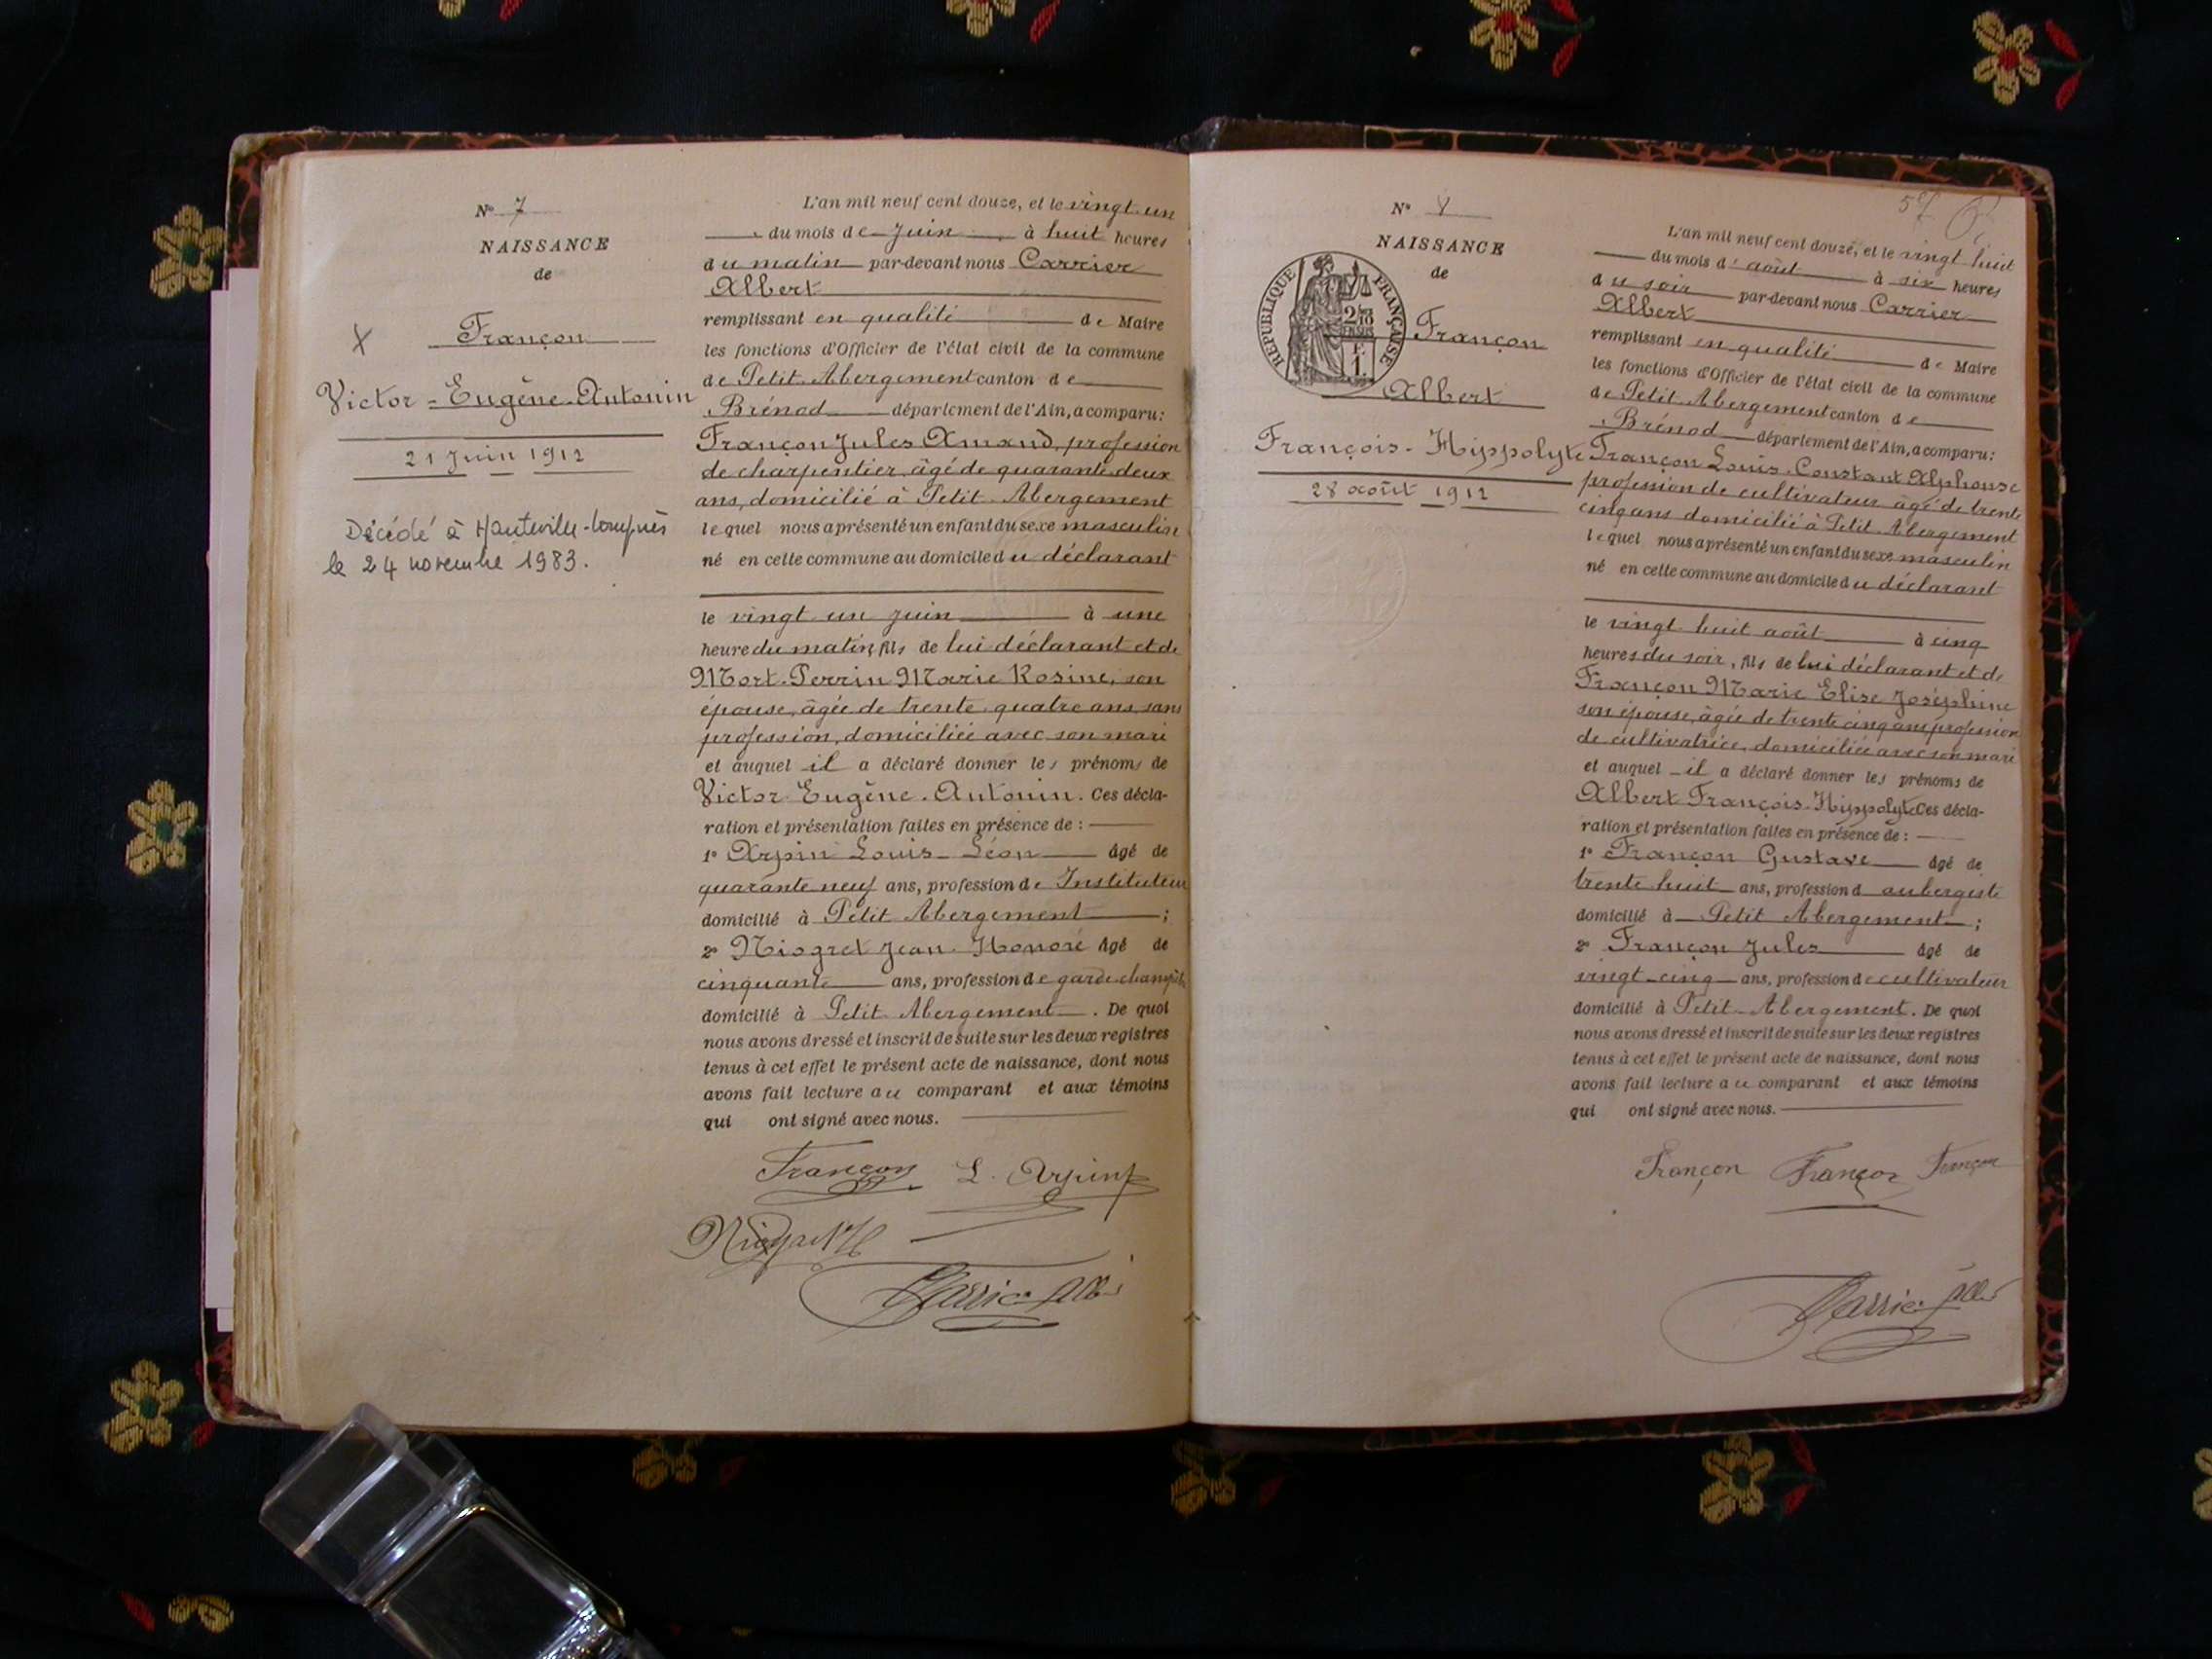 N° 7
NAISSANCE
de
Françon
Victor-Eugène-Antonin
21 Juin 1912
Décédé à Hauteville-Lompnès
le 24 novembre 1983.
L'an mil neuf cent douze, et le vingt un
du mois de Juin à huit heures
du matin par-devant nous Carrier
Albert
remplissant en qualité de Maire
les fonctions d'Officier de l'état civil de la commune
de Petit-Abergement canton de
Brénod département de l'Ain, a comparu:
Françon Jules Amand, profession
de charpentier, âgé de quarante deux
ans, domicilié à Petit-Abergement
lequel nous a présenté un enfant du sexe masculin
né en cette commune au domicile du déclarant
le vingt un juin à une
heure du matin, fils de lui déclarant et de
Mort-Perrin Marie Rosine, son
épouse, âgée de trente-quatre ans, sans
profession, domiciliée avec son mari
et auquel il a déclaré donner les prénoms de
Victor-Eugène-Antonin. Ces décla-
ration et présentation faites en présence de :
1° Arpin Louis-Léon âgé de
quarante neuf ans, profession de Instituteur
domicilié à Petit Abergement ;
2° Niogret Jean-Honoré âgé de
cinquante ans, profession de garde-champêtre
domicilié à Petit-Abergement. De quoi
nous avons dressé et inscrit de suite sur les deux registres
tenus à cet effet le présent acte de naissance, dont nous
avons fait lecture au comparant et aux témoins
qui ont signé avec nous.
Françon L. Arpin
Niogret H
Carrier Albt
5e
N° 8
NAISSANCE
de
RÉPUBLIQUE FRANÇAISE
F.
1.
Françon
Albert
François-Hippolyte
28 août 1912
L'an mil neuf cent douze, et le vingt huit
du mois d'août à six heures
du soir par-devant nous Carrier
Albert
remplissant en qualité de Maire
les fonctions d'Officier de l'état civil de la commune
de Petit-Abergement canton de
Brénod département de l'Ain, a comparu:
Françon Louis-Constant Alphonse
profession de cultivateur âgé de trente
cinq ans domicilié à Petit-Abergement
lequel nous a présenté un enfant du sexe masculin
né en cette commune au domicile du déclarant
le vingt-huit août à cinq
heures du soir, fils de lui déclarant et de
Françon Marie Elise Joséphine
son épouse, âgée de trente cinq ans profession
de cultivatrice, domiciliée avec son mari
et auquel il a déclaré donner les prénoms de
Albert François-Hippolyte Ces décla-
ration et présentation faites en présence de :
1° Françon Gustave âgé de
trente huit ans, profession d aubergiste
domicilié à Petit Abergement ;
2° Françon Jules âgé de
vingt-cinq ans, profession de cultivateur
domicilié à Petit-Abergement. De quoi
nous avons dressé et inscrit de suite sur les deux registres
tenus à cet effet le présent acte de naissance, dont nous
avons fait lecture au comparant et aux témoins
qui ont signé avec nous.
Françon Françon Françon
Carrier Albt